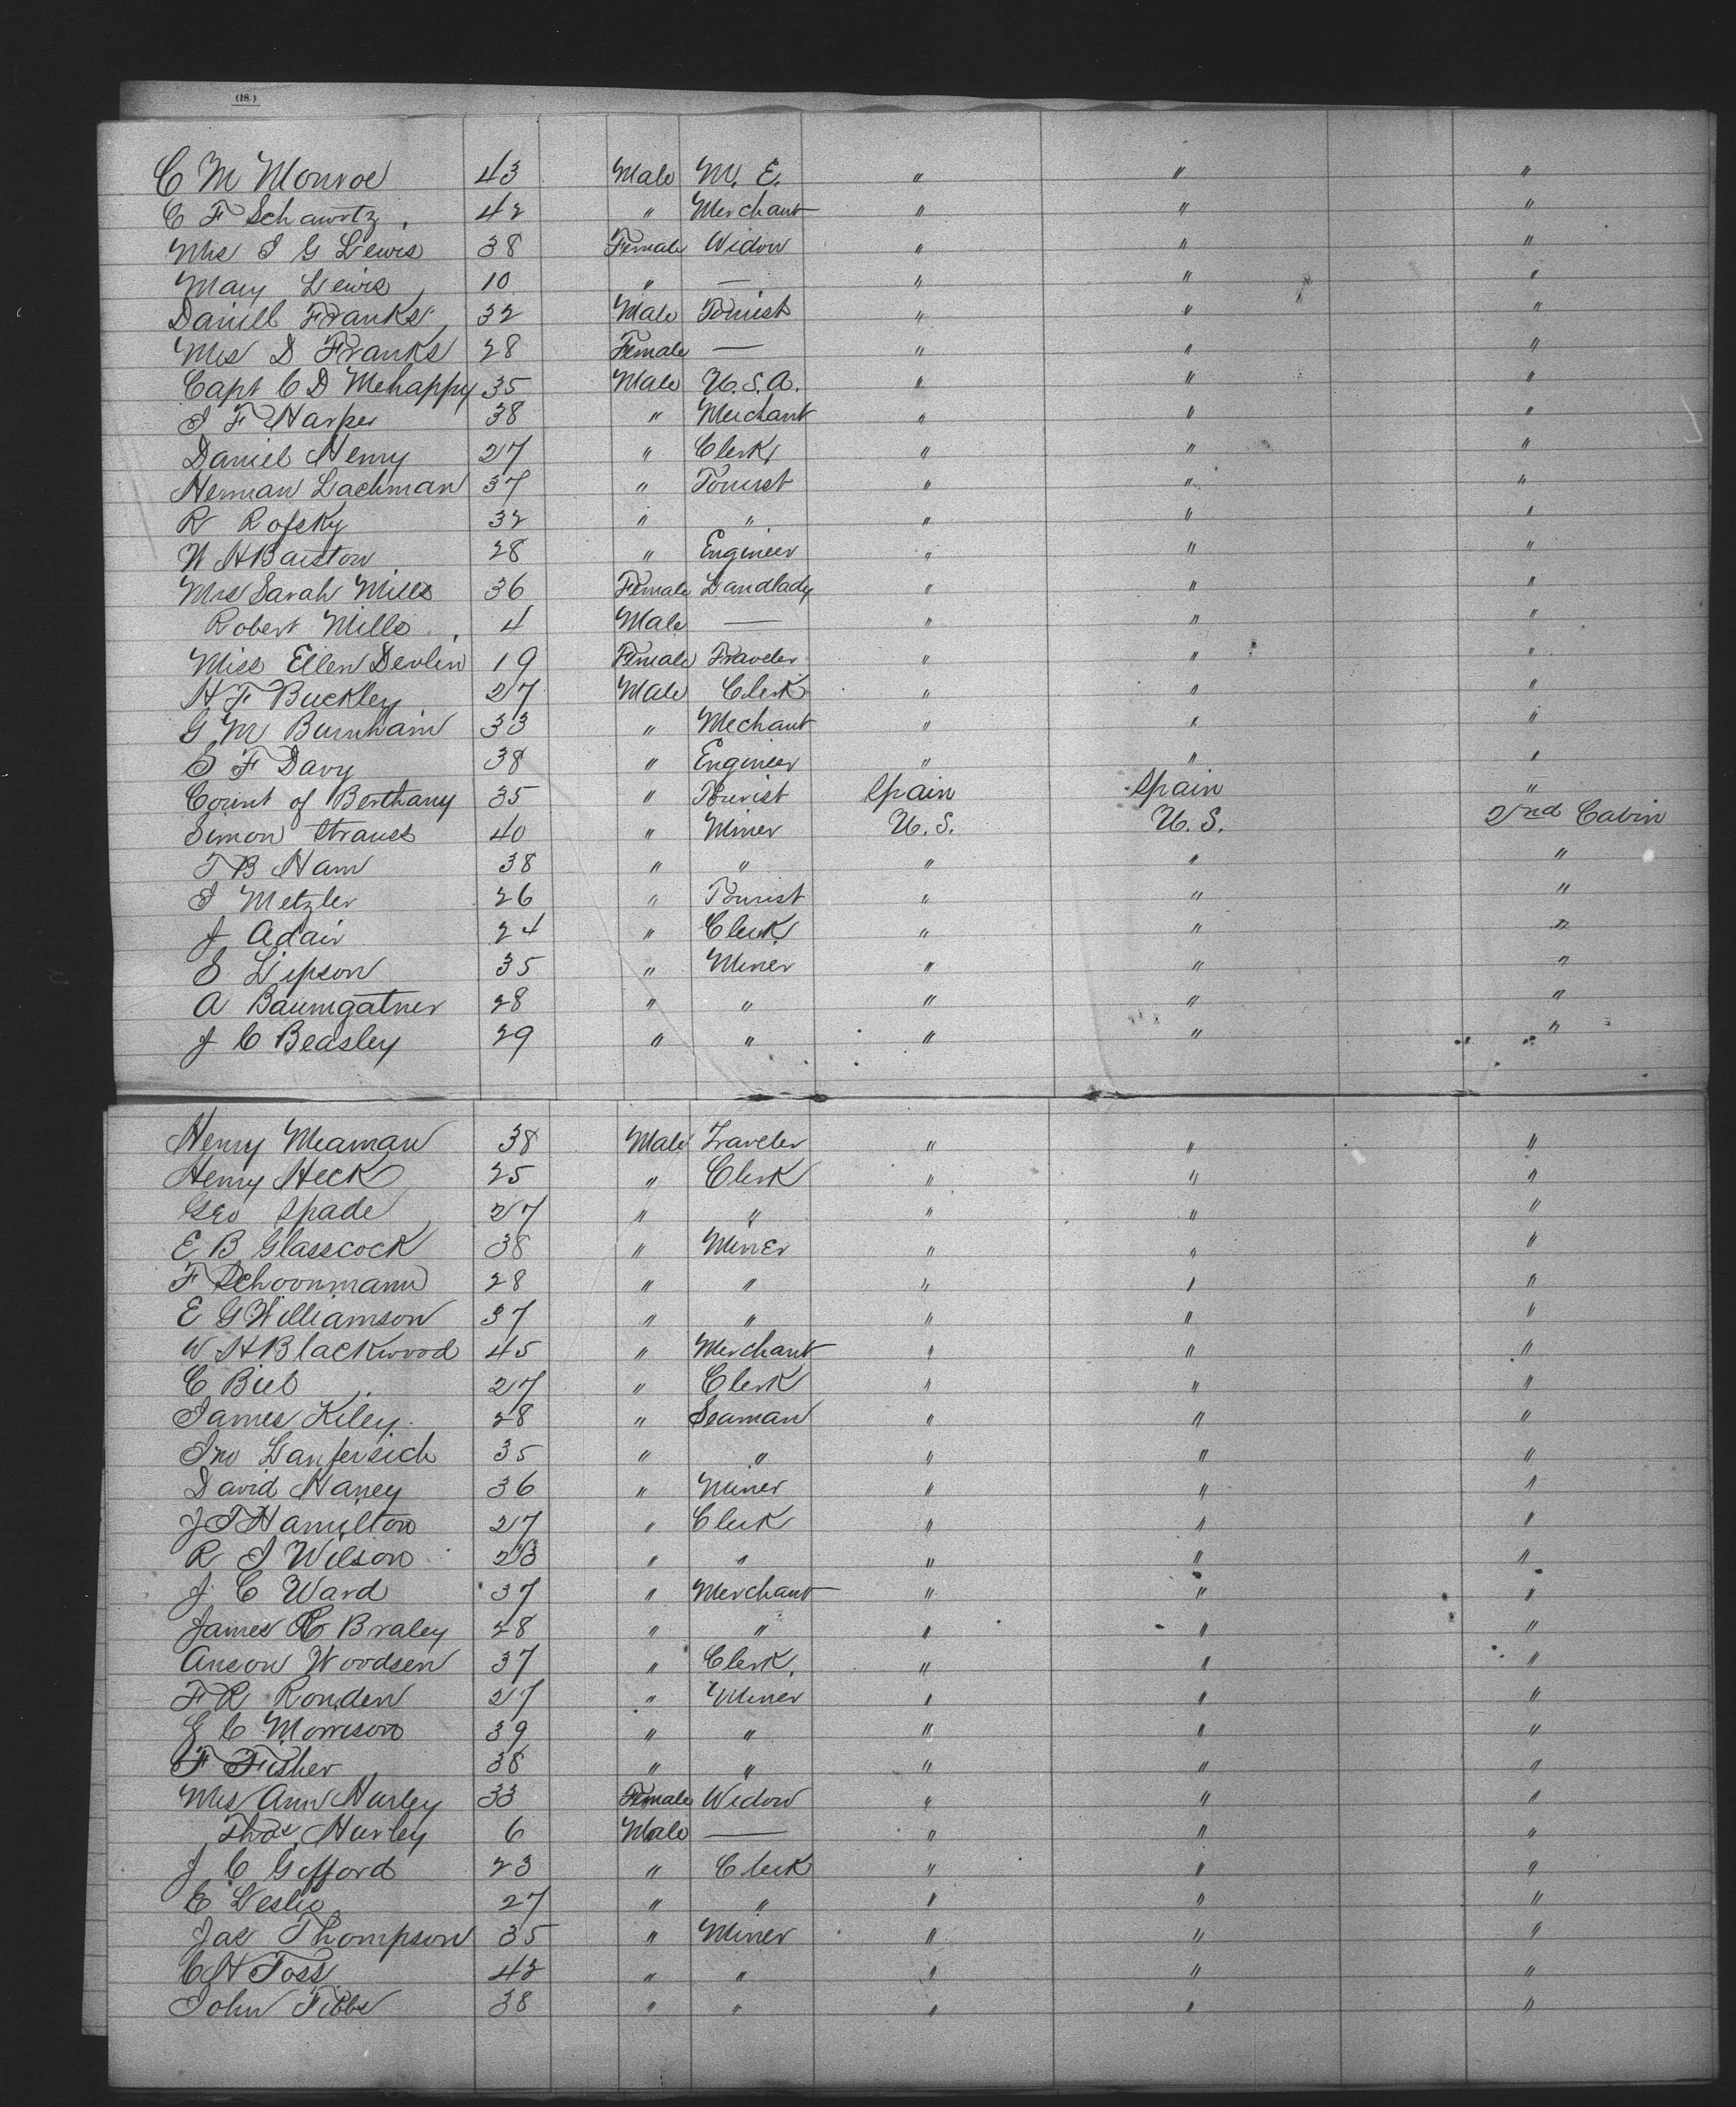 (18.)
C M Monroe 43 Male M. E. " " "
C F Schawrtz, 42 " Merchant " " "
Mrs I G Lewis 38 Female Widow " " "
Mary Lewis, 10 " — " " "
Daniel Franks, 32 Male Tourist " " "
Mrs D Franks 28 Female — " " "
Capt C D Mehappy 35 Male U.S.A. " " "
I F Harper 38 " Merchant " " "
Daniel Henry 27 " Clerk, " " "
Herman Lachman 37 " Tourist " " "
R Rofsky 32 " " " " "
W H Baistow 28 " Engineer " " "
Mrs Sarah Mills 36 Female Landlady " " "
Robert Mills, 4 Male — " " "
Miss Ellen Devlin 19 Female Traveler " " "
H F Buckley 27 Male Clerk " " "
G M Burnham 33 " Mechant " " "
S F Davy 38 " Engineer " " "
Count of Berthany 35 " Tourist Spain Spain "
Simon Strauss 40 " Miner U. S. U. S. 2nd Cabin
T B Ham 38 " " " " "
I Metzler 26 " Tourist " " "
J Adair 24 " Clerk " " "
S Lipson 35 " Miner " " "
A Baumgatner 28 " " " " "
J C Beasley 29 " " " " "
Henry Meaman 38 Male Traveler " " "
Henry Heck 25 " Clerk " " "
Geo Spade 27 " " " " "
E B Glasscock 38 " Miner " " "
F Schoonmann 28 " " " " "
E G Williamson 37 " " " " "
W H Blackwood 45 " Merchant " " "
C Biel 27 " Clerk " " "
James Kiley. 28 " Seaman " " "
Jno 35 " " " " "
David Haney 36 " Miner " " "
J T Hamilton 27 " Clerk " " "
R J Wilson 23 " " " " "
J C Ward 37 " Merchant " " "
James C Braley 28 " " " " "
Anson Woodsen 37 " Clerk. " " "
F R Ronden 27 " Miner " " "
E C Morrison 39 " " " " "
F Fisher 38 " " " " "
Mrs Ann Hurley 33 Female Widow " " "
Thos Hurley 6 Male — " " "
J C Gifford 23 " Clerk " " "
E Leslie 27 " " " " "
Jas Thompson 35 " Miner " " "
C H Foss 42 " " " " "
John Tibbs 38 " " " " "